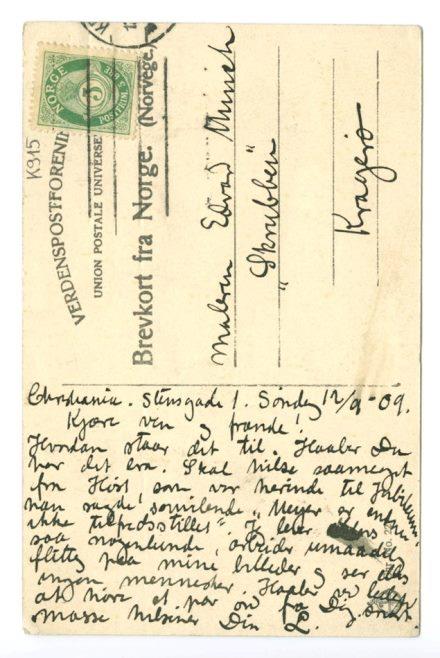 NORGE
5 ØRE
K 915
VERDENSPOSTFORENIN
UNION POSTALE UNIVERSE
Brevkort fra Norge. (Norvege.)
Maleren Edvard Munch
"Skrubben"
Kragerø
Christiania. Stensgade 1. Søndag 12/9-09.
Kjære ven og frænde!
Hvordan staar det til. Haaber Du
har det bra. Skal hilse saameget
fra Høst, som var herinde til Jubilæum
han sagde, smilende "Meyer er endnu
ikke tilfredsstillet". Je lever ellers
saa nogenlunde, arbeider umaadelig
flittig paa mine billeder og ser
ingen mennesker. Haaber
at høre et par ord fra Dig,
masse hilsener Din